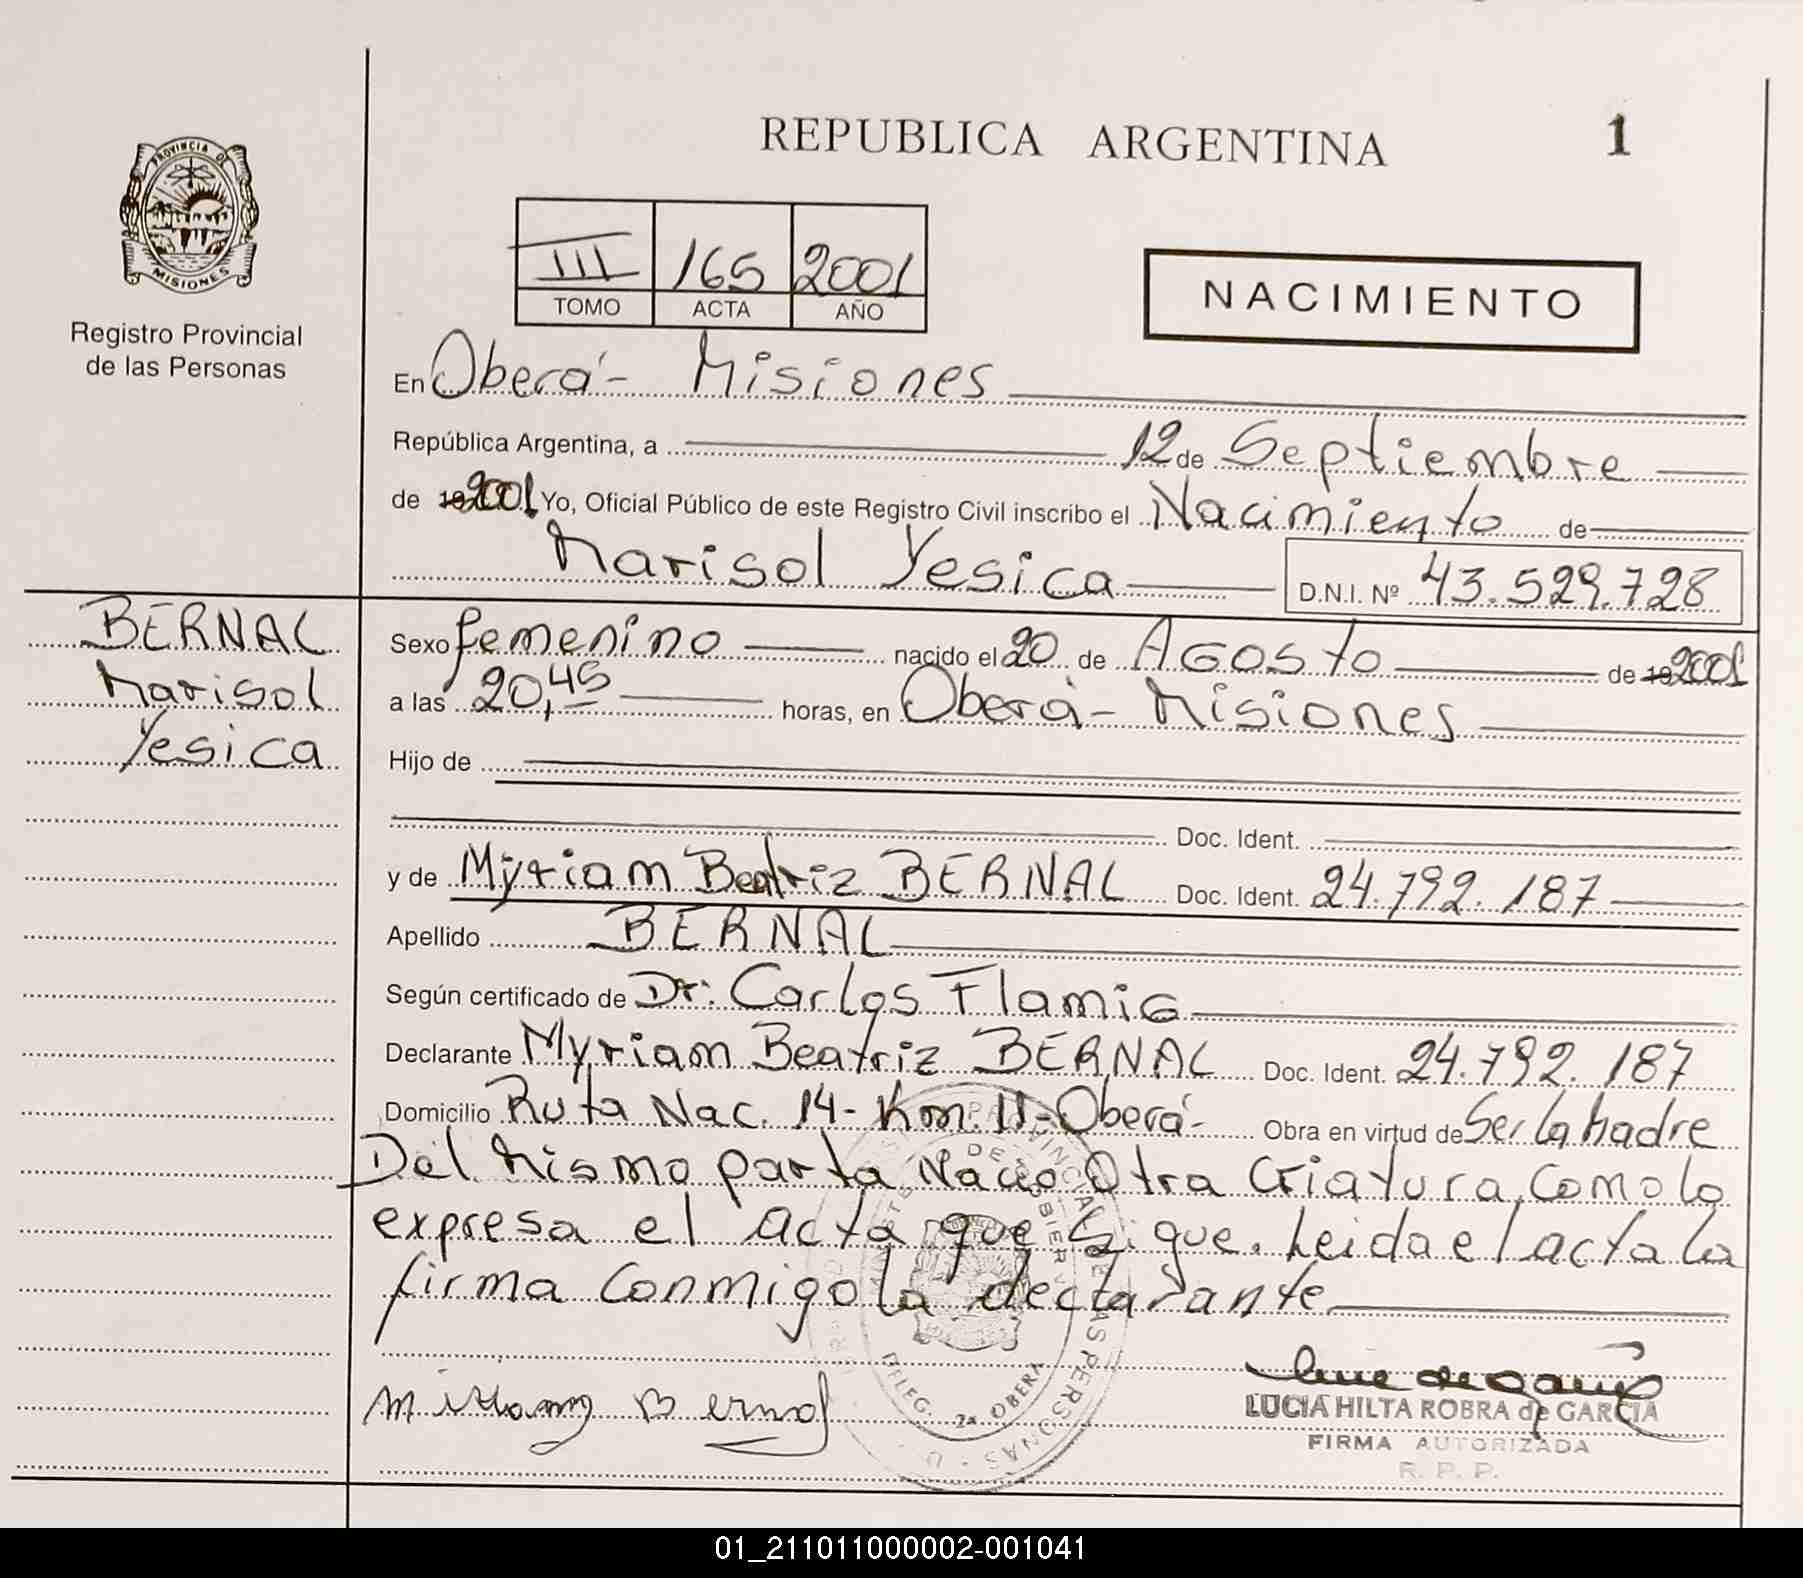 REPUBLICA ARGENTINA
1
PROVINCIA DE
MISIONES
Registro Provincial
de las Personas
III 165 2001
TOMO ACTA AÑO
NACIMIENTO
En Oberá- Misiones
República Argentina, a 12 de Septiembre
de 19 2001 Yo, Oficial Público de este Registro Civil inscribo el Nacimiento de
Marisol Yesica D.N.I. Nº 43.529.728
BERNAL
Marisol
Yesica
Sexo femenino nacido el 20 de Agosto de 19 2001
a las 20,45 horas, en Oberá- Misiones
Hijo de
Doc. Ident.
y de Myriam Beatriz BERNAL Doc. Ident. 24.792.187
Apellido BERNAL
Según certificado de Dr: Carlos Flamig
Declarante Myriam Beatriz BERNAL Doc. Ident. 24.792.187
Domicilio Ruta Nac. 14- Km. 11- Oberá- Obra en virtud de Ser la Madre
Del Mismo parto Nacio Otra Criatura, Como lo
expresa el acta que Sigue. Leida el acta la
firma Conmigo la declarante
DELEG. 2ª OBERA
LUCIA HILTA ROBRA de GARCIA
FIRMA AUTORIZADA
R. P. P.
01_211011000002-001041